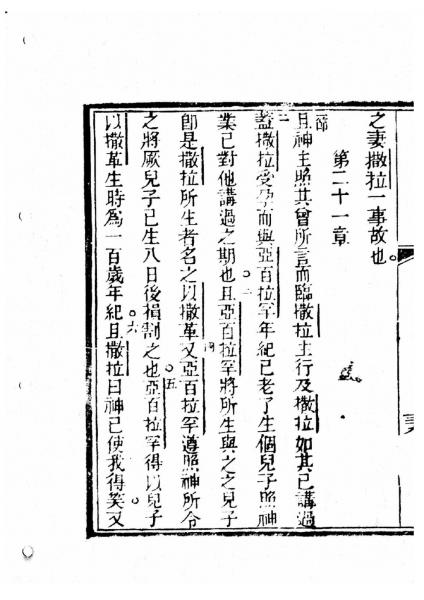 之妻撒拉一事故也
第二十一章
節一 且神主照其曾所言而臨撒拉主行及撒拉如其已講過
二 蓋撒拉受孕而與亞百拉罕年紀已老了生個兒子照神
業已對他講過之期也且亞百拉罕將所生與之之兒子
四 卽是撒拉所生者名之以撒革又亞百拉罕遵照神所令
五 之將厥兒子已生八日後損割之也亞百拉罕得以兒子
六 以撒革生時爲一百歲年紀且撒拉曰神已使我得笑又